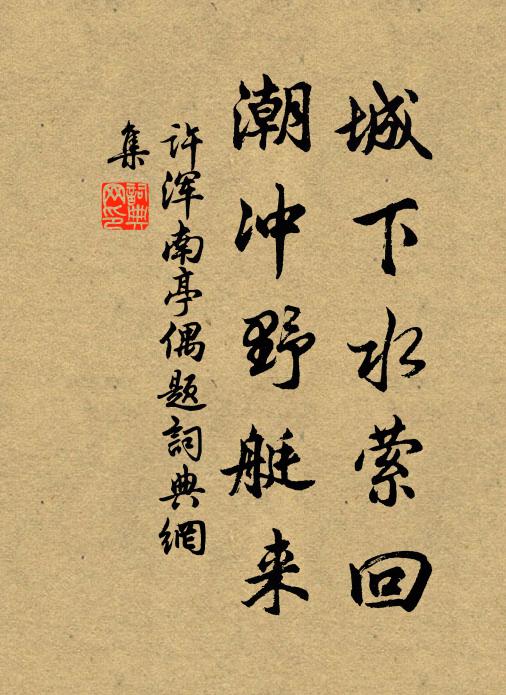 城下水萦回
潮冲野艇来
许浑南亭偶题詞典網
集
詞典网印